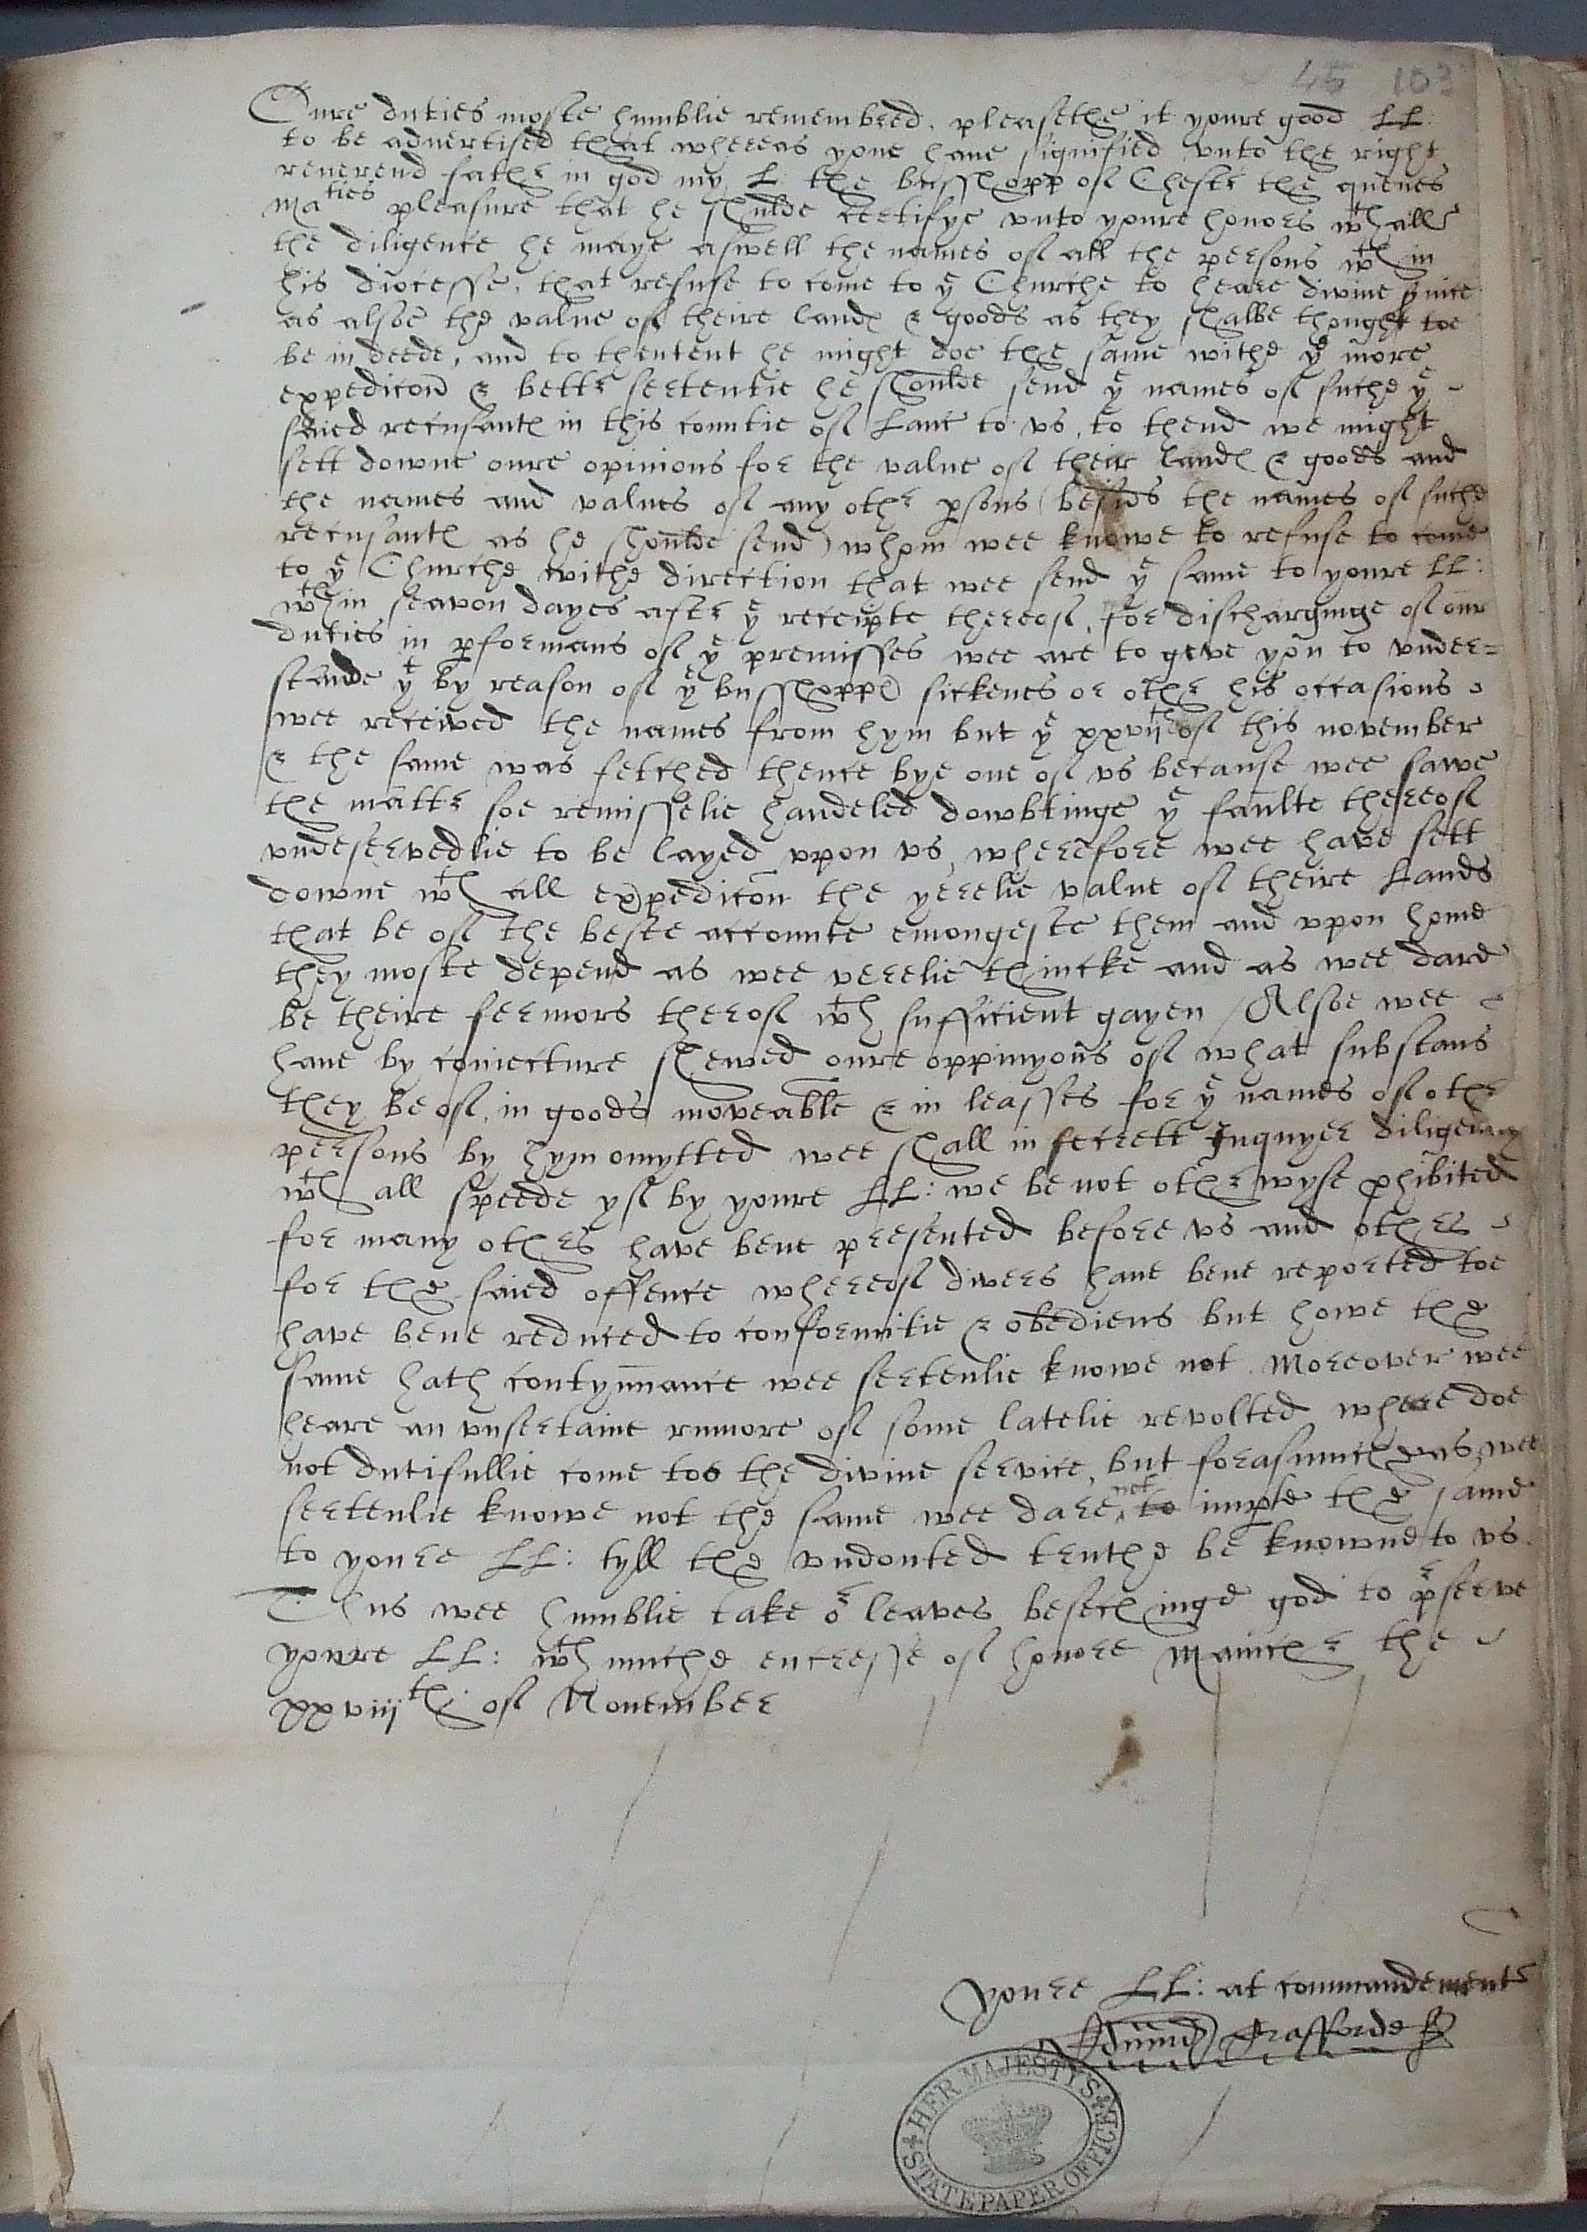 45 103
Oure duties moste humblie remembred. pleasethe it youre good LL:
to be advertised that whereas youe haue signified vnto the right
reuerend fathr in god my L the busshopp of Chestr the quenes
maties pleasure that he shulde certifye vnto youre honors wth all
the diligence he maye aswell the names of all the persons wth in
his diocesse, that refuse to come to ye Churche to heare divine service
as alsoe the value of theire landes & goods as they shalbe thought toe
be in deede, and to thentent he might doe the same withe ye more
expedicon & bettr sertentie he shoulde send ye names of suche ye
saied recusantes in this countie of Lanc to vs, to thend we might
sett downe oure opinions for the value of their landes & goods and
the names and values of any othr psons (besids the names of suche
recusantes as he shoulde send) whom wee knowe to refuse to come
to ye Churche withe direction that wee send ye same to youre LL:
wthin seavon dayes aftr ye receipte thereof, for discharginge of our
duties in pformans of ye premisses wee are to geve you to vnder=
stande yt by reason of ye busshoppes sickenes or othr his occasions
wee received the names from hym but ye xxvijth of this november
& the same was fetched thence bye one of vs because wee sawe
the mattr soe remisselie handeled dowbtinge ye faulte thereof
vndeservedlie to be layed vpon vs, wherefore wee have sett
downe wth all expedicon the yerelie value of theire Lands
that be of the beste accounte emongeste them and vpon home
they moste depend as wee verelie thincke and as wee dare
be theire fermors therof wth sufficient gayen / Alsoe wee
haue by coniecture shewed oure oppinyons of what substans
they be of, in goods moveable & in leasses for ye names of othr
persons by hym omytted wee shall in secrett Inquyer diligently
wth all speede yf by youre LL: we be not othrwyse phibited
for many othrs have bene presented before vs and othrs
for the saied offence whereof divers haue bene reported toe
have bene reduced to conformitie & obediens but howe the
same hath contynnance wee sertenlie knowe not. Moreover wee
heare an vnsertaine rumore of some latelie revolted where doe
not dutifullie come too the divine service, but forasmuch as wee
sertenlie knowe not the same wee dare not to the same
to youre LL: tyll the vndouted truthe be knowne to vs.
Thus wee humblie take or leaves besechinge god to prserve
youre LL: wth muche encresse of honore Manchr the
xxviijth of November
youre LL: at commandement
Edmund Trafforde
HER MAJESTY'S STATE PAPER OFFICE